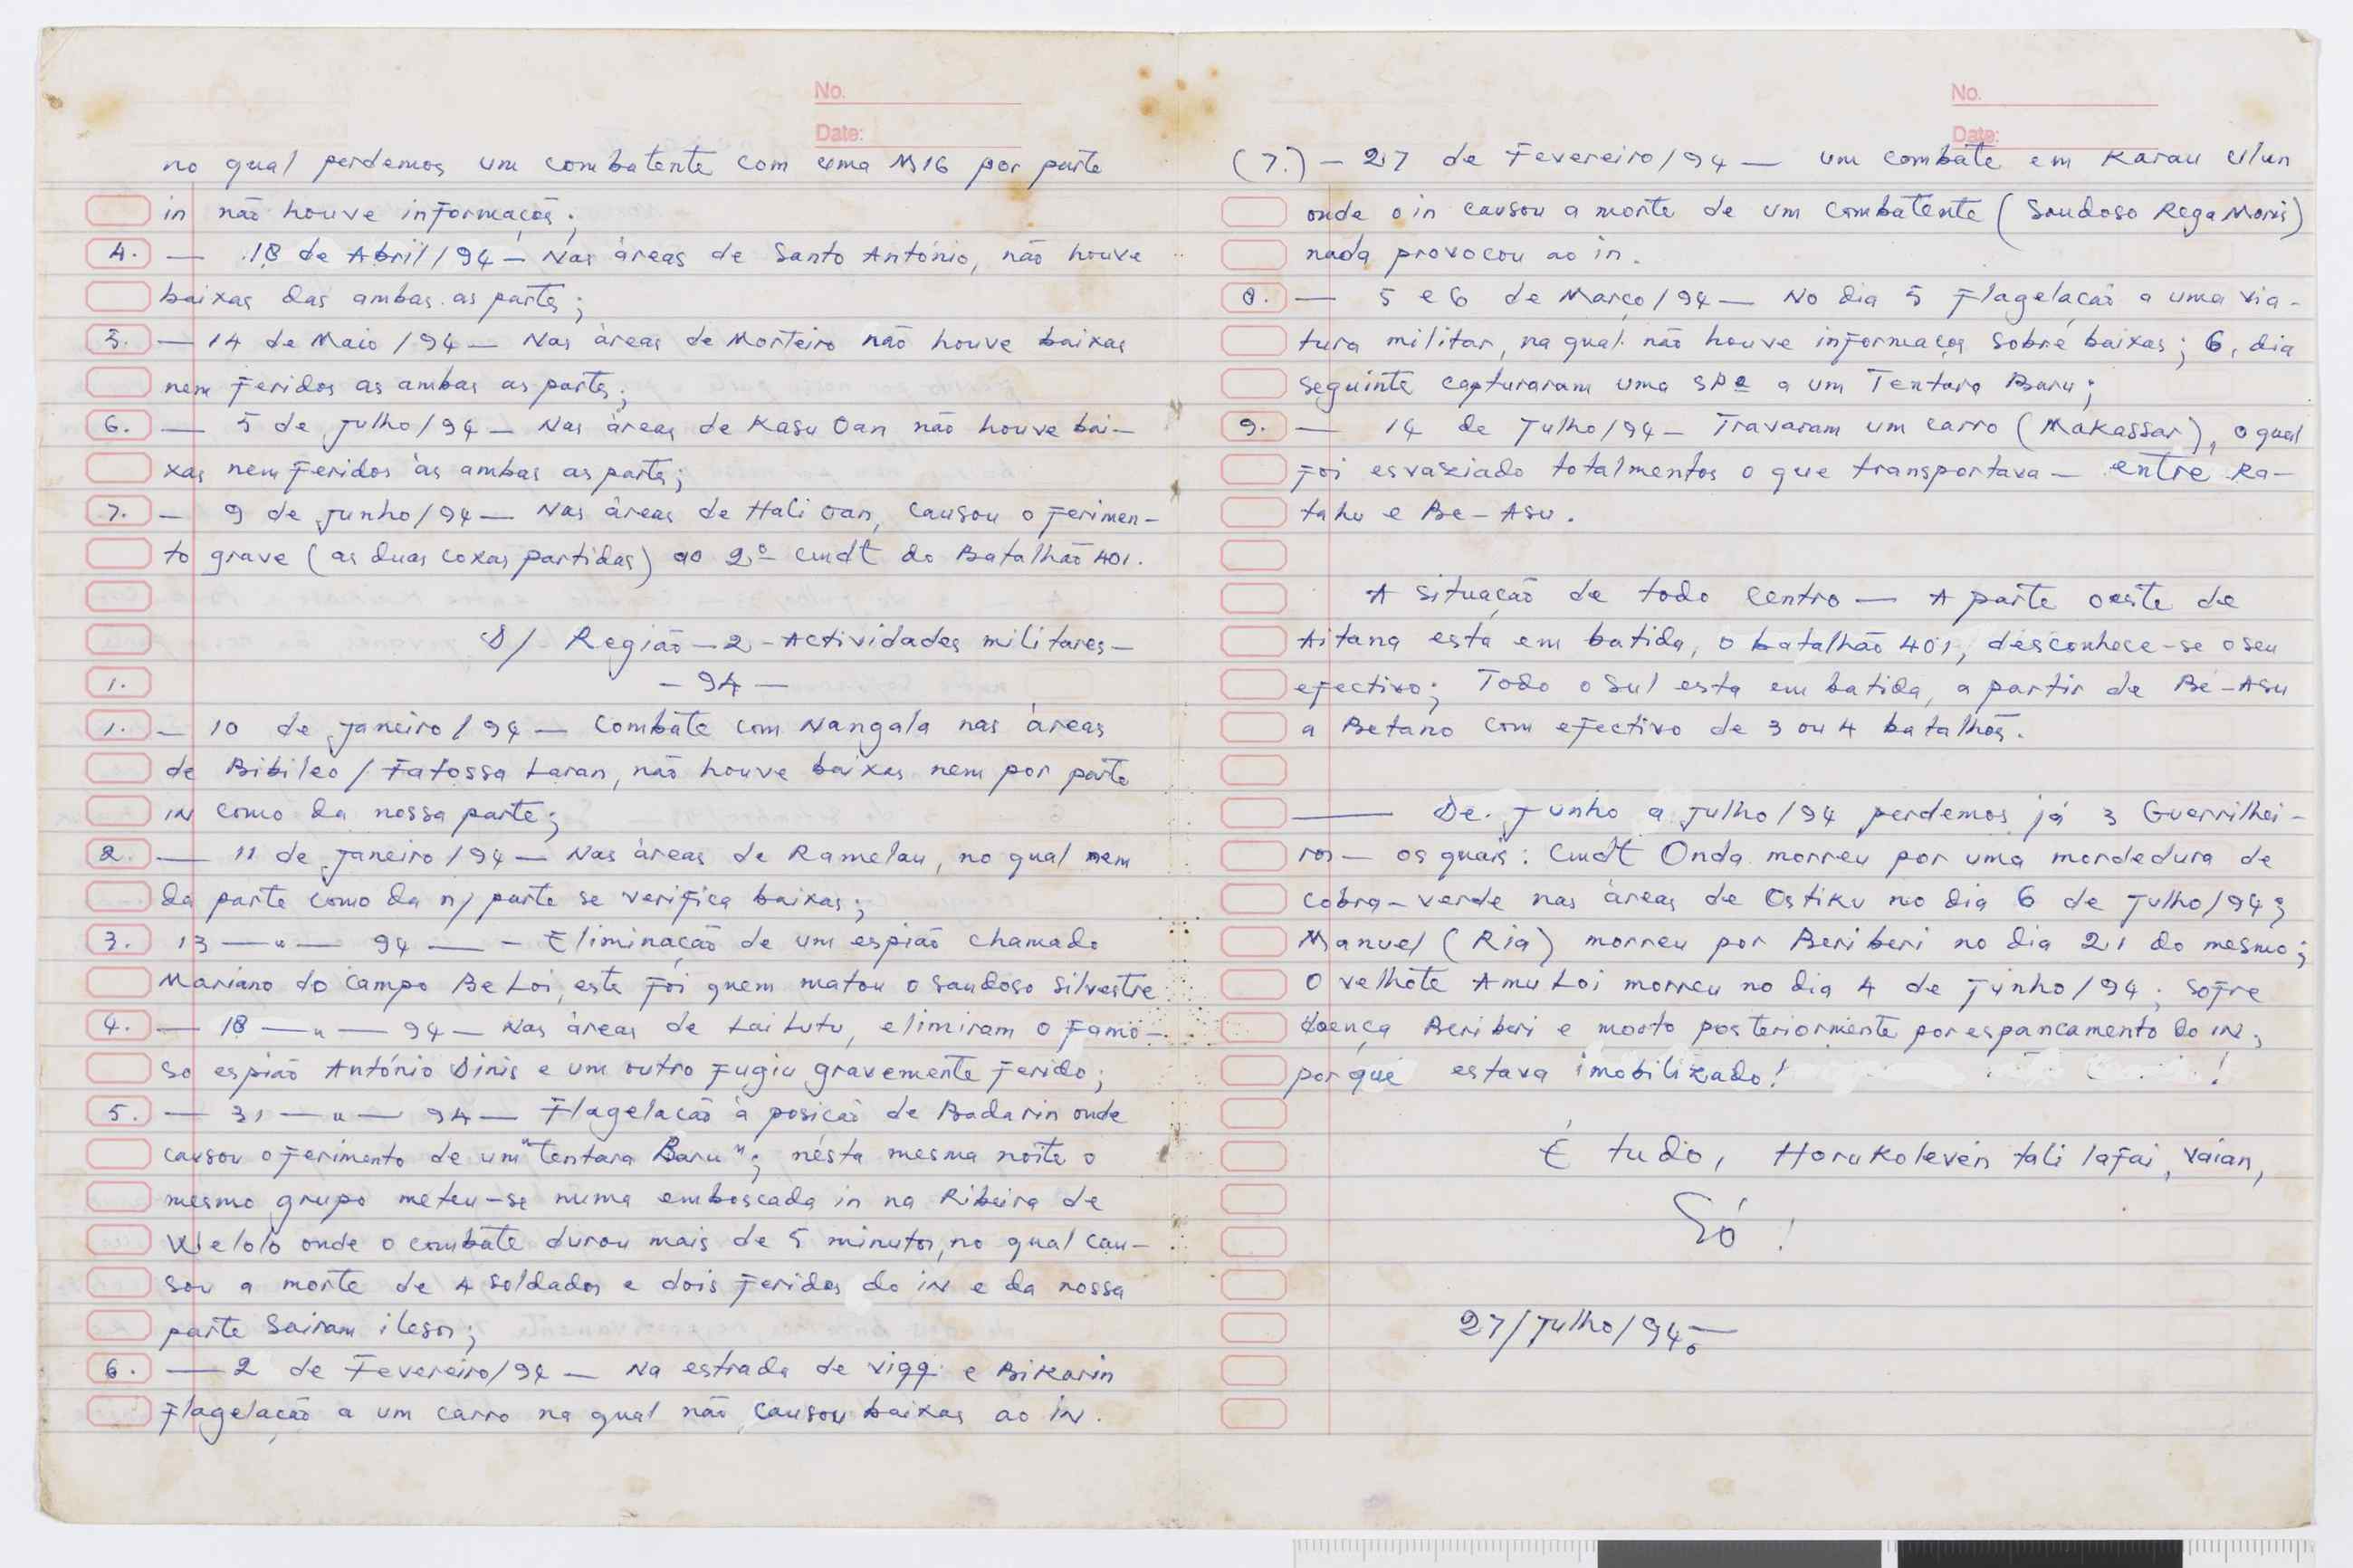 No.
Date:
no qual perdemos um combatente com uma M16 por parte
in não houve informaçõs;
4. — 18 de Abril/94 — Nas áreas de Santo António, não houve
baixas das ambas as partes;
5. — 14 de Maio/94 — Nas áreas de Morteiro não houve baixas
nem feridos as ambas as partes;
6. — 5 de Julho/94 — Nas áreas de Kasu Oan não houve bai-
xas nem feridos às ambas as partes;
7. — 9 de Junho/94 — Nas áreas de Hali Oan, causou o ferimen-
to grave (as duas coxas partidas) ao 2º Cmdt do Batalhão 401.
D/ Região — 2 - Actividades militares —
1. — 94 —
1. — 10 de Janeiro/94 — Combate com Nangala nas áreas
de Bibileo / Fatossa Laran, não houve baixas nem por parte
IN como da nossa parte;
2. — 11 de Janeiro/94 — Nas áreas de Ramelau, no qual nem
da parte como da n/ parte se verifica baixas;
3. 13 — " — 94 — - Eliminação de um espião chamado
Mariano do campo Be Loi, este foi quem matou o saudoso Silvestre
4. — 18 — " — 94 — Nas áreas de Lai Lutu, elimiram o famo-
so espião António Dinis e um outro fugiu gravemente ferido;
5. — 31 — " — 94 — Flagelação à posição de Badarin onde
causou o ferimento de um "Tentara Baru"; nésta mesma noite o
mesmo grupo meteu-se numa emboscada in na Ribeira de
Welolo onde o combate durou mais de 5 minutos, no qual cau-
sou a morte de 4 soldados e dois feridos do IN e da nossa
parte Sairam ilesos;
6. — 2 de Fevereiro/94 — Na estrada de Viqq. e Bikarin
Flagelação a um carro na qual não causou baixas ao IN.
No.
Date:
(7.) — 27 de Fevereiro/94 — um combate em Karau Ulun
onde o in causou a morte de um combatente (Saudoso Rega Monis)
nada provocou ao in.
8. — 5 e 6 de Março/94 — No dia 5 Flagelação a uma via-
tura militar, na qual não houve informaços sobré baixas; 6, dia
seguinte capturaram uma SP2 a um Tentara Baru;
9. — 14 de Julho/94 — Travaram um carro (Makassar), o qual
foi esvaziado totalmentos o que transportava — entre Ra-
tahu e Be-Asu.
A situação de todo centro — A parte oeste de
Aitana está em batida, o batalhão 401, desconhece-se o seu
efectivo; Todo o sul esta em batida, a partir de Bé-Asu
a Betano com efectivo de 3 ou 4 batalhõs.
— De Junho a Julho/94 perdemos já 3 Guerrilhei-
ros — os quais: Cmdt Onda morreu por uma mordedura de
cobra-verde nas áreas de Ostiku no dia 6 de Julho/94;
Manuel (Ria) morreu por Beriberi no dia 21 do mesmo;
O velhote Amu Loi morreu no dia 4 de Junho/94; sofre
doença Beriberi e morto posteriormente por espancamento do IN,
porqué estava imobilizado! !
É tudo, Horukolevén tali lafai, vaian,
Só !
27/Julho/94